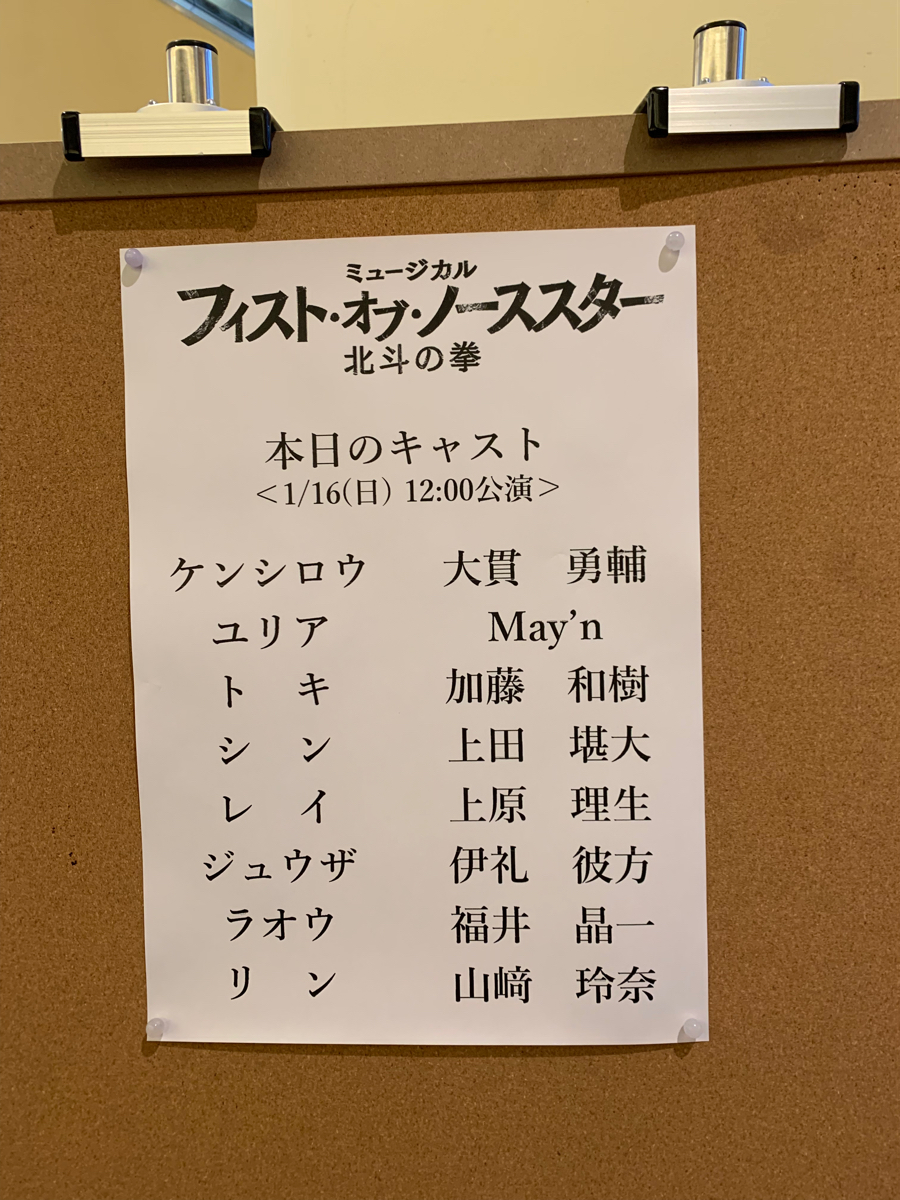 ミュージカル
フィスト・オブ・ノーススター
北斗の拳
本日のキャスト
＜1/16(日) 12:00公演＞
ケンシロウ　大貫　勇輔
ユリア　May'n
ト　キ　加藤　和樹
シ　ン　上田　堪大
レ　イ　上原　理生
ジュウザ　伊礼　彼方
ラオウ　福井　晶一
リ　ン　山﨑　玲奈